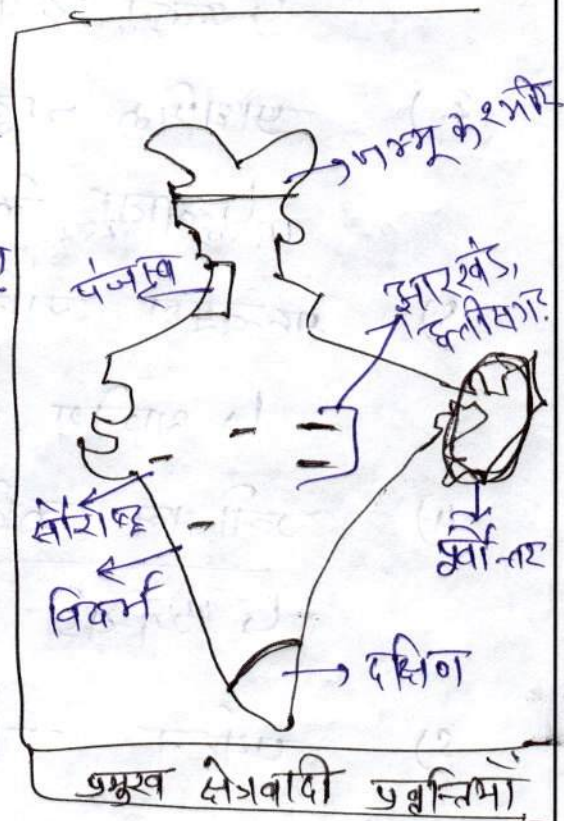 जम्मू कश्मीर
पंजाब
झारखंड,
छत्तीसगढ़
सौराष्ट्र
पूर्वोत्तर
विदर्भ
दक्षिण
प्रमुख क्षेत्रवादी प्रवृत्तियाँ